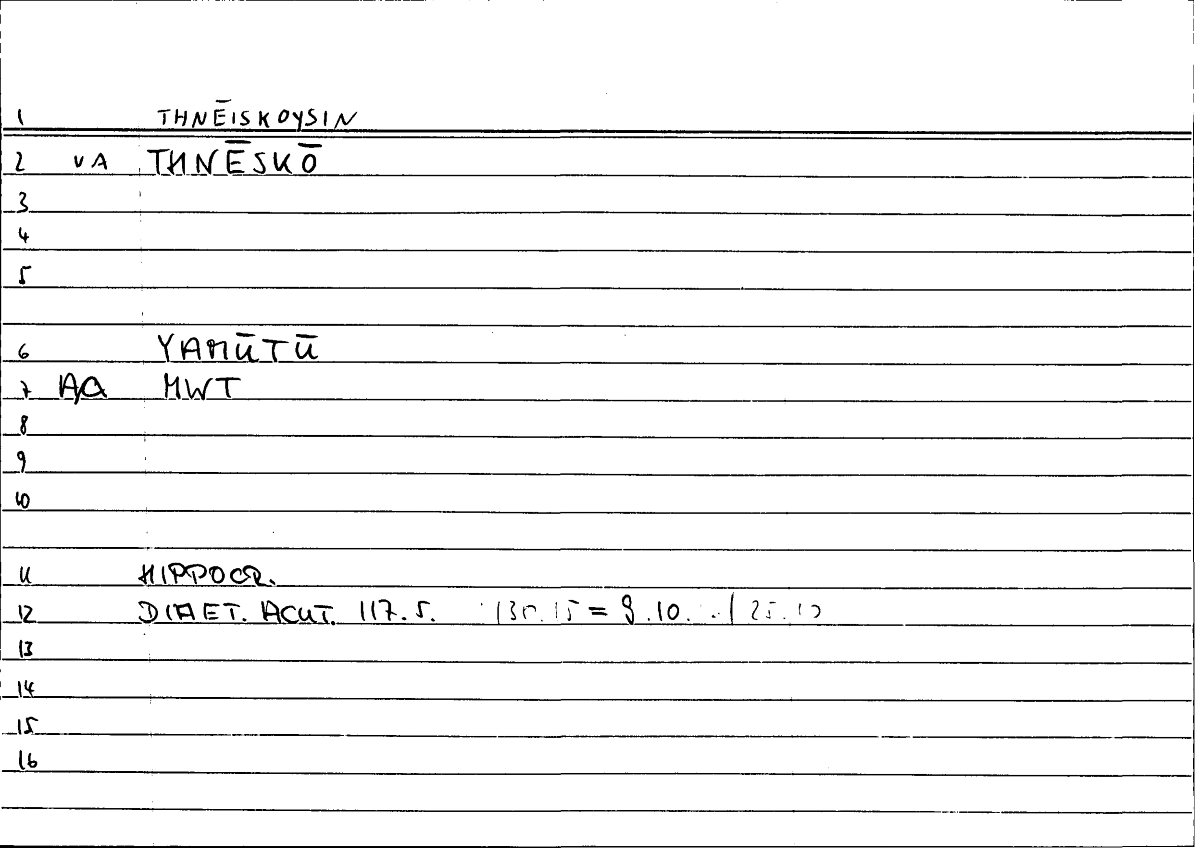 1 THNĒISKOYSIN
2 VA THNĒSKŌ
3
4
5
6 YAMŪTŪ
7 AQ MWT
8
9
10
11 HIPPOCR.
12 DIAET. ACUT. 117.5. = 9.10. 25.
13
14
15
16